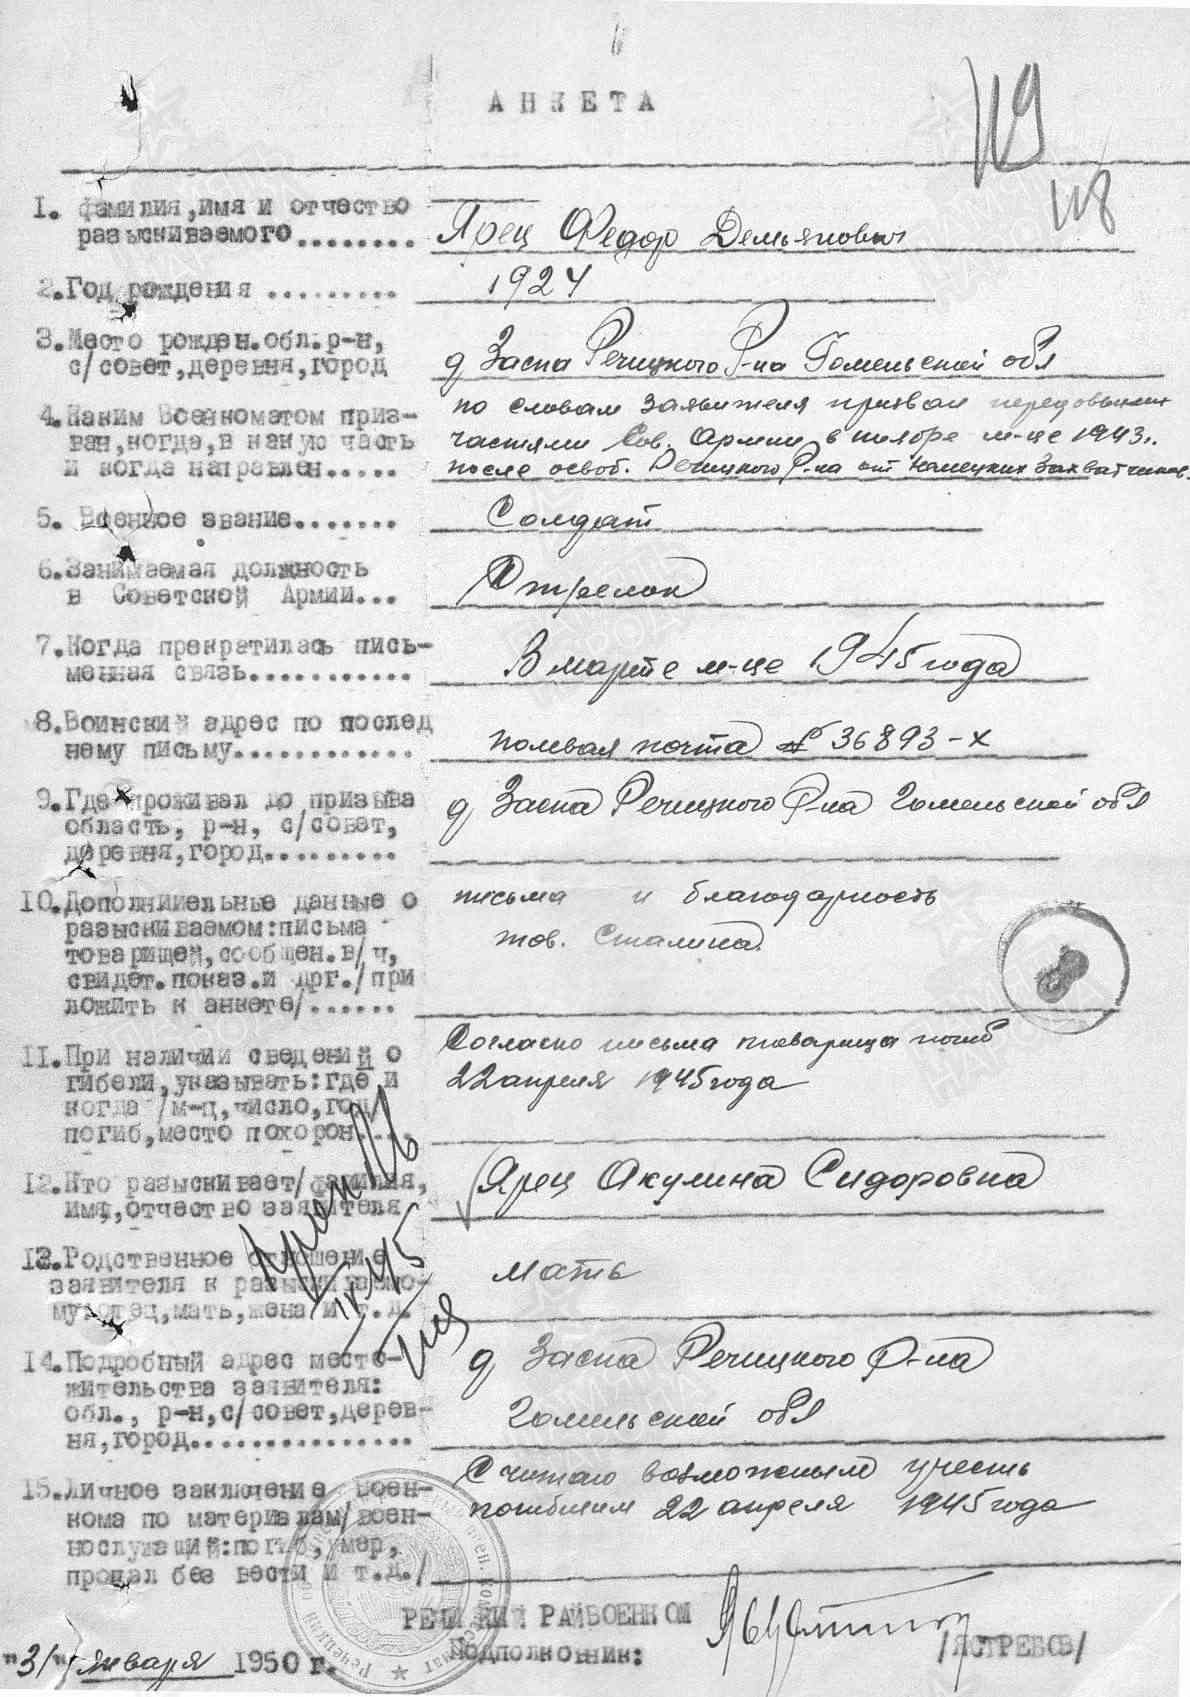 АНКЕТА
119
118
1. фамилия,имя и отчество
разыскиваемого........ Ярец Федор Демьянович
2.Год рождения ......... 1924
3.Место рожден.обл.р-н,
с/совет,деревня,город д Заспа Речицкого Р-на Гомельской обл
4.Каким Военкоматом приз- по словам заявителя призван передовыми
ван,когда,в какую часть частями Сов. Армии в ноябре м-це 1943г.
и когда направлен..... после освоб. Речицкого Р-на от немецких захватчиков.
5. Военное звание....... Солдат
6.Занимаемая должность
в Советской Армии... Стрелок
7.Когда прекратилась пись-
менная связь........... В марте м-це 1945 года
8.Воинский адрес по послед
нему письму............ полевая почта № 36893-х
9.Где проживал до призыва д Заспа Речицкого Р-на Гомельской обл
область, р-н, с/совет,
деревня,город.........
10.Дополнительные данные о письма и благодарность
разыскиваемом:письма тов. Сталина.
товарищей,сообщен.в/ч,
свидет.показ.и дрг./при
ложить к анкете/......
11.При наличии сведений о Согласно письма товарища погиб
гибели,указывать:где и 22 апреля 1945 года
когда /м-ц,число,год
погиб,место похорон....
12.Кто разыскивает/фамилия, Ярец Акулина Сидоровна
имя,отчество заявителя
13.Родственное отношение
заявителя к разыскиваемо- мать
му/отец,мать,жена и т.д.
14.Подробный адрес место- д Заспа Речицкого Р-на
жительства заявителя:
обл., р-н,с/совет,дерев- Гомельской обл
ня,город...............
15.Личное заключение воен- Считаю возможным учесть
кома по материалам/воен- погибшим 22 апреля 1945 года
нослужащий:погиб,умер,
пропал без вести и т.д./
РЕЧИЦКИЙ РАЙВОЕНКОМ
Подполковник: /ЯСТРЕБОВ/
"31" января 1950 г.